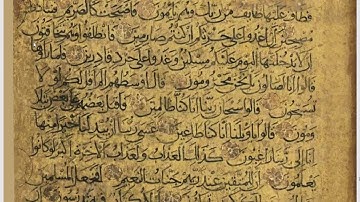 فطاف عليها طايف من ربك وهم نايمون فاصبحت كالصريم فتنادوا
مصبحين ان اغدوا على حرثكم ان كنتم صارمين فانطلقوا وهم يتخافتون
ان لا يدخلنها اليوم عليكم مسكين وغدوا على حرد قادرين فلما راوها
قالوا انا لضالون بل نحن محرومون قال اوسطهم الم اقل لكم لولا
تسبحون قالوا سبحان ربنا انا كنا ظالمين فاقبل بعضهم على بعض يتلا
ومون قالوا يا ويلنا انا كنا طاغين عسى ربنا ان يبدلنا خيرا منها
انا الى ربنا راغبون كذلك العذاب ولعذاب الاخرة اكبر لو كانوا
يعلمون ان للمتقين عند ربهم جنات النعيم افنجعل المسلمين